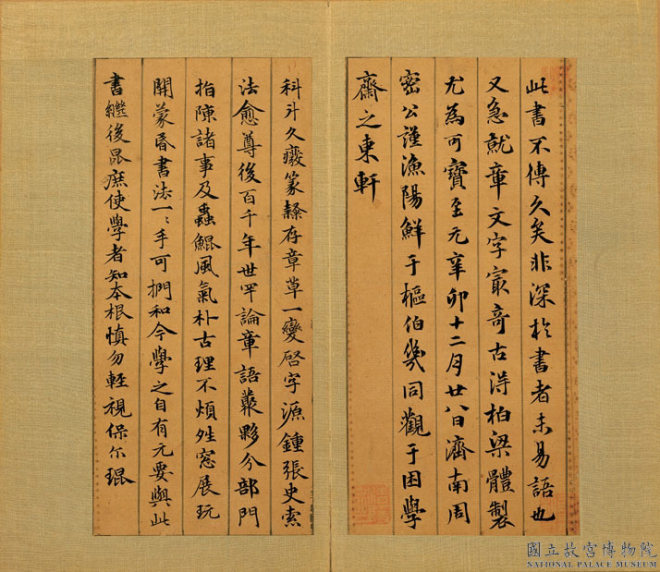 此書不傳久矣非深於書者未易語也
又急就章文字最奇古得柏梁體製
尤為可寶至元辛卯十二月廿八日濟南周
密公謹漁陽鮮于樞伯幾同觀于困學
齋之東軒
科斗久癈篆隸存章草一變啓字源鍾張史索
法愈尊後百千年世罕論章語叢夥分部門
指陳諸事及蟲鯤風氣朴古理不煩兙窓展玩
開蒙昏書法一〻手可捫和今學之自有元要與此
書繼後昆庶使學者知本根慎勿輕視保尔琨
國立故宮博物院
NATIONAL PALACE MUSEUM